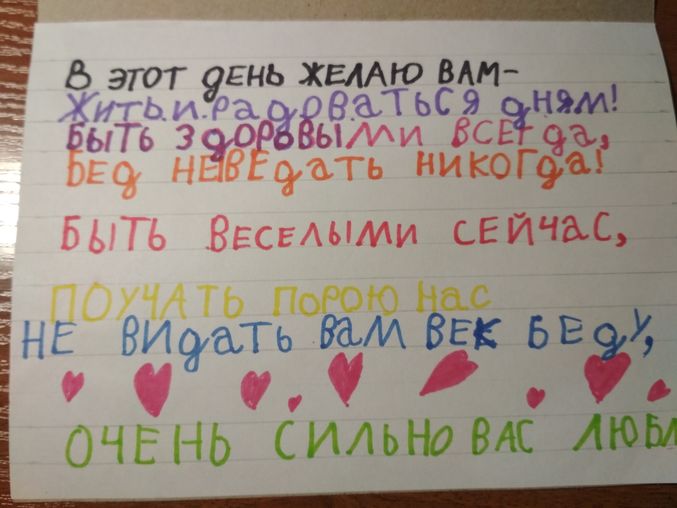 В ЭТОТ ДЕНЬ ЖЕЛАЮ ВАМ-
ЖИТЬ.И.РАДОВ.АТЬСЯ ДНЯМ!
БЫТЬ ЗДОРОВЫМИ ВСЕГДА,
БЕД НЕВЕДАТЬ НИКОГДА!
БЫТЬ ВЕСЕЛЫМИ СЕЙЧАС,
ПОУЧАТЬ ПОРОЮ НАС
НЕ ВИДАТЬ ВАМ ВЕК БЕДУ,
ОЧЕНЬ СИЛЬНО ВАС ЛЮБЛ